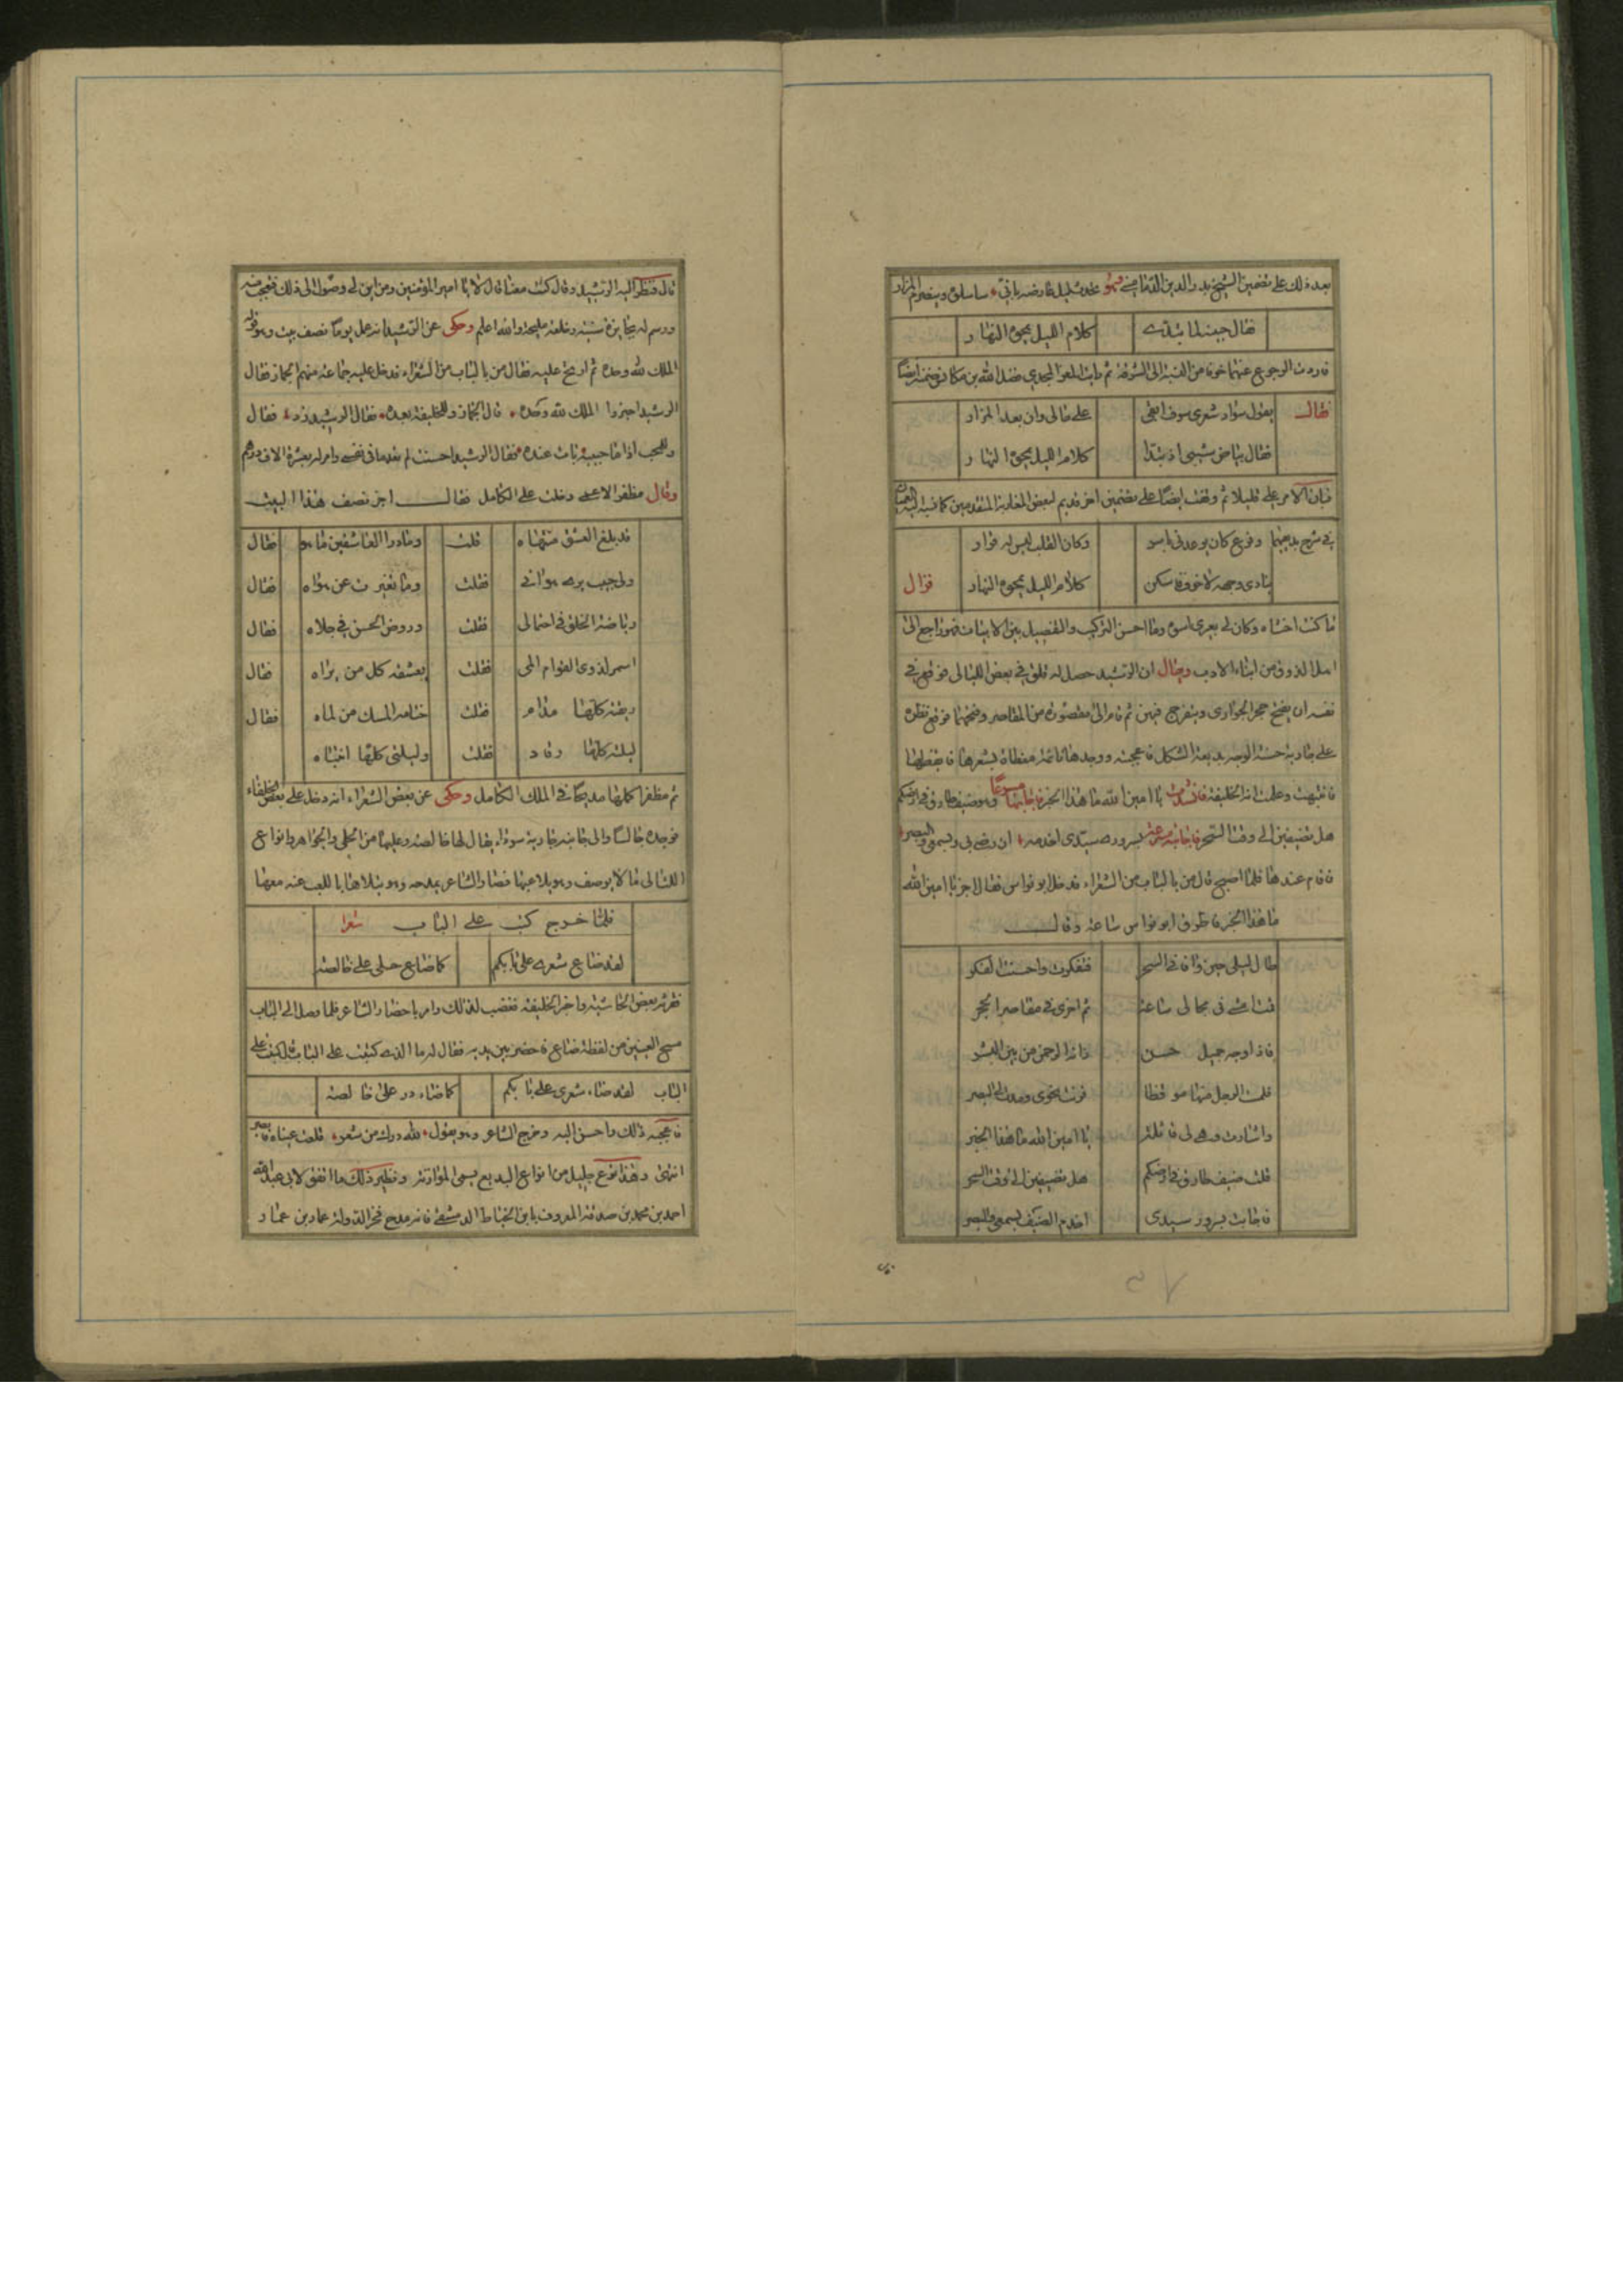 بعد ذلك على تضمين الشيخ بدر الدين الدماميني وهو
فقال جبينه لما تبدى كلام الليل يمحوه النهار
فاردت الرجوع عنهما خوفا من النسبة الى السرقة ثم رايت المعز المجدي فضل الله بن مكانس ضمنه ايضا
فقال يقول سواد شعري سوف ابقى على حالي وان بعد المزار
فقال بياض شيبي اذ تبدا كلام الليل يمحوه النهار
فبان الامر على قليلا ثم وقفت ايضا على تضمين اخر قديم لبعض المغاربة المتقدمين
وكان القلب ليس له قرار
ينادي وجهه لا خوف فاسكن كلام الليل يمحوه النهار
ما كنت اخشاه وكان لي بعري اسوة وما احسن التركيب والتفصيل بين الابيات فهو راجع الى
اهل الذوق من ابناء الادب وقال ان الرشيد حصل له قلق في بعض الليالي فوقع في
نفسه ان يفتح حجر الجواري ويتفرج فيهن ثم قام الى مقصورة من المقاصر وفتحها فوقع نظره
على جارية حسنة الوجه بديعة الشكل فاعجبته ووجدها نائمة مغطاة بشعرها فايقظها
فانتبهت وعلمت انه الخليفة فانشدت يا امين الله ما هذا الخبر فاجابها مسرعا وهو ضيف طارق في ارضكم
هل تضيفين الى وقت السحر فاجابته مسرعة بسرور سيدي اخدمه ان رضي بي وبسمعي والبصر
فنام عندها فلما اصبح قال من بالباب من الشعراء فدخل ابو نواس فقال اجز يا امين الله
ما هذا الخبر فاطرق ابو نواس ساعة وقال
طال ليلي حين وافاني السحر فتفكرت واحسنت الفكر
قمت امشي في مجالي ساعة ثم اخرى في مقاصير الحجر
فاذا وجه جميل حسن زانه الرحمن من بين البشر
فلمست الرجل منها موقظا فرنت نحوي ومدت لي البصر
واشارت وهي لي قائلة يا امين الله ما هذا الخبر
قلت ضيف طارق في ارضكم هل تضيفين الى وقت السحر
فاجابت بسرور سيدي اخدم الضيف بسمعي والبصر
قال فنظر اليه الرشيد وقال كنت معنا قال لا يا امير المؤمنين ومن اين لي وصول الى ذلك فتعجب منه
ورسم له بجايزة سنية وخلعة مليحة والله اعلم وحكى عن الرشيد انه عمل يوما نصف بيت وهو قوله
الملك لله وحده ثم ارتج عليه فقال من بالباب من الشعراء فدخل عليه جماعة منهم الجماز فقال
الرشيد اجيزوا الملك لله وحده قال الجماز وللخليفة بعده فقال الرشيد زد فقال
وللمحب اذا ما حبيبه بات عنده فقال الرشيد احسنت لم تعد ما في نفسي وامر له بعشرة الاف درهم
وقال مظفر الاعمى دخلت على الكامل فقال اجز نصف هذا البيت
قد بلغ العشق منتهاه قلت وما درا العاشقين ما هو فقال
ولي حبيب يرى هواني فقلت وما تغيرت عن هواه فقال
رياضة الخلق في احتمالي فقلت وروض الحسن في حلاه فقال
اسمر لذن القوام المى فقلت يعشقه كل من يراه فقال
ريقته كلها مدام فقلت ختامها المسك من لماه فقال
ليلته كلها رقاد فقلت وليلتي كلها انتباه
ثم مظفرا كملها مديحا في الملك الكامل وحكى عن بعض الشعراء انه دخل على بعض الخلفاء
فوجده جالسا والى جانبه جارية سوداء يقال لها خالصة وعليها من الحلي والجواهر وانواع
اللئالي ما لا يوصف وهو يلاعبها فصار الشاعر يمدحه وهو يتلاهى باللعب عنه معها
فلما خرج كتب على الباب شعرا
لقد ضاع شعري على بابكم كما ضاع حلي على خالصه
فقراه بعض الحاشية واخبر الخليفة فغضب لذلك وامر باحضار الشاعر فلما وصل الى الباب
مسح العينين من لفظة ضاع فاحضر بين يديه فقال له ما الذي كتبت على الباب قال كتبت على
الباب لقد ضاء شعري على بابكم كما ضاء در على خالصه
فاعجبه ذلك واحسن اليه وخرج الشاعر وهو يقول لله درك من شعر قلعت عيناه فابصر
انتهى وهذا نوع جليل من انواع البديع يسمى المواربة ونظير ذلك ما اتفق لابي عبد الله
احمد بن محمد بن صدقة المعروف بابن الخياط الدمشقي فانه مدح فخر الدولة عماد بن عمار